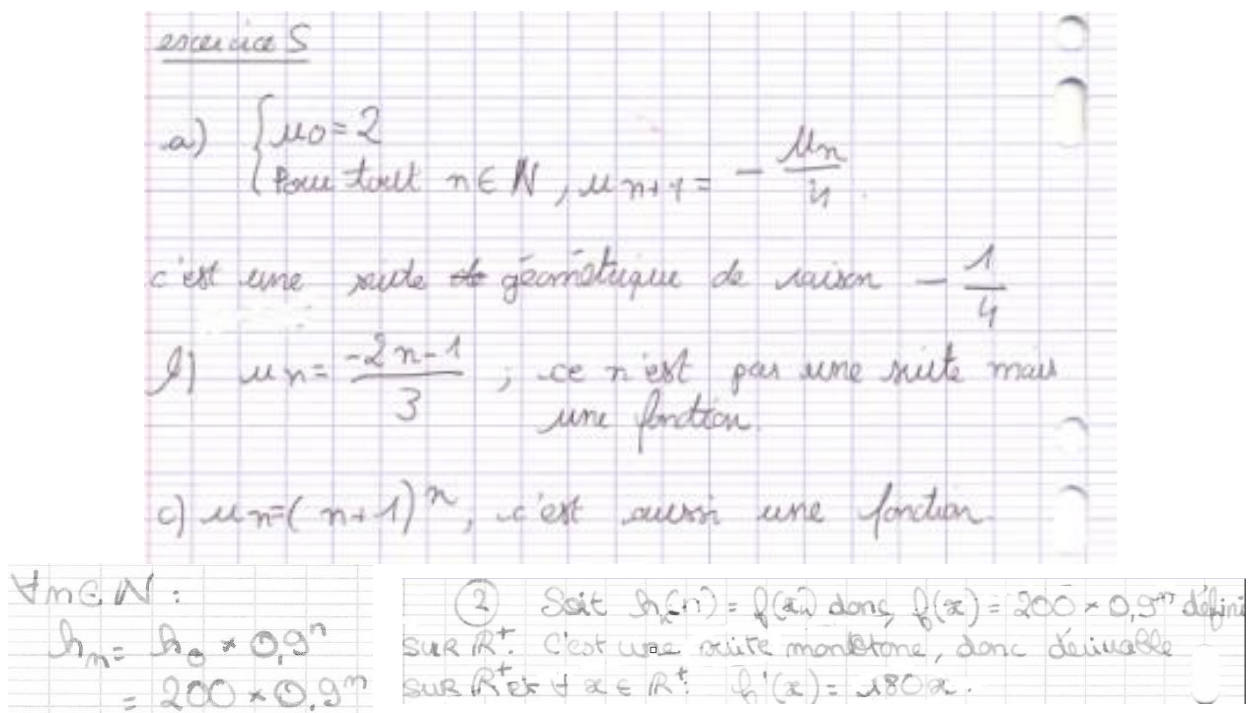 exercice 5
a) { u0 = 2
Pour tout n ∈ N, un+1 = - un/4.
c'est une suite géométrique de raison - 1/4
b) un = (-2n-1)/3 ; ce n'est pas une suite mais
une fonction.
c) un = (n+1)^n, c'est aussi une fonction.
∀n∈N :
hn = h0 × 0,9^n
= 200 × 0,9^n
② Soit h(n) = f(x) donc f(x) = 200 × 0,9^n défini
sur R+. C'est une suite monotone, donc dérivable
sur R+ et ∀ x ∈ R+ : f'(x) = 180x.